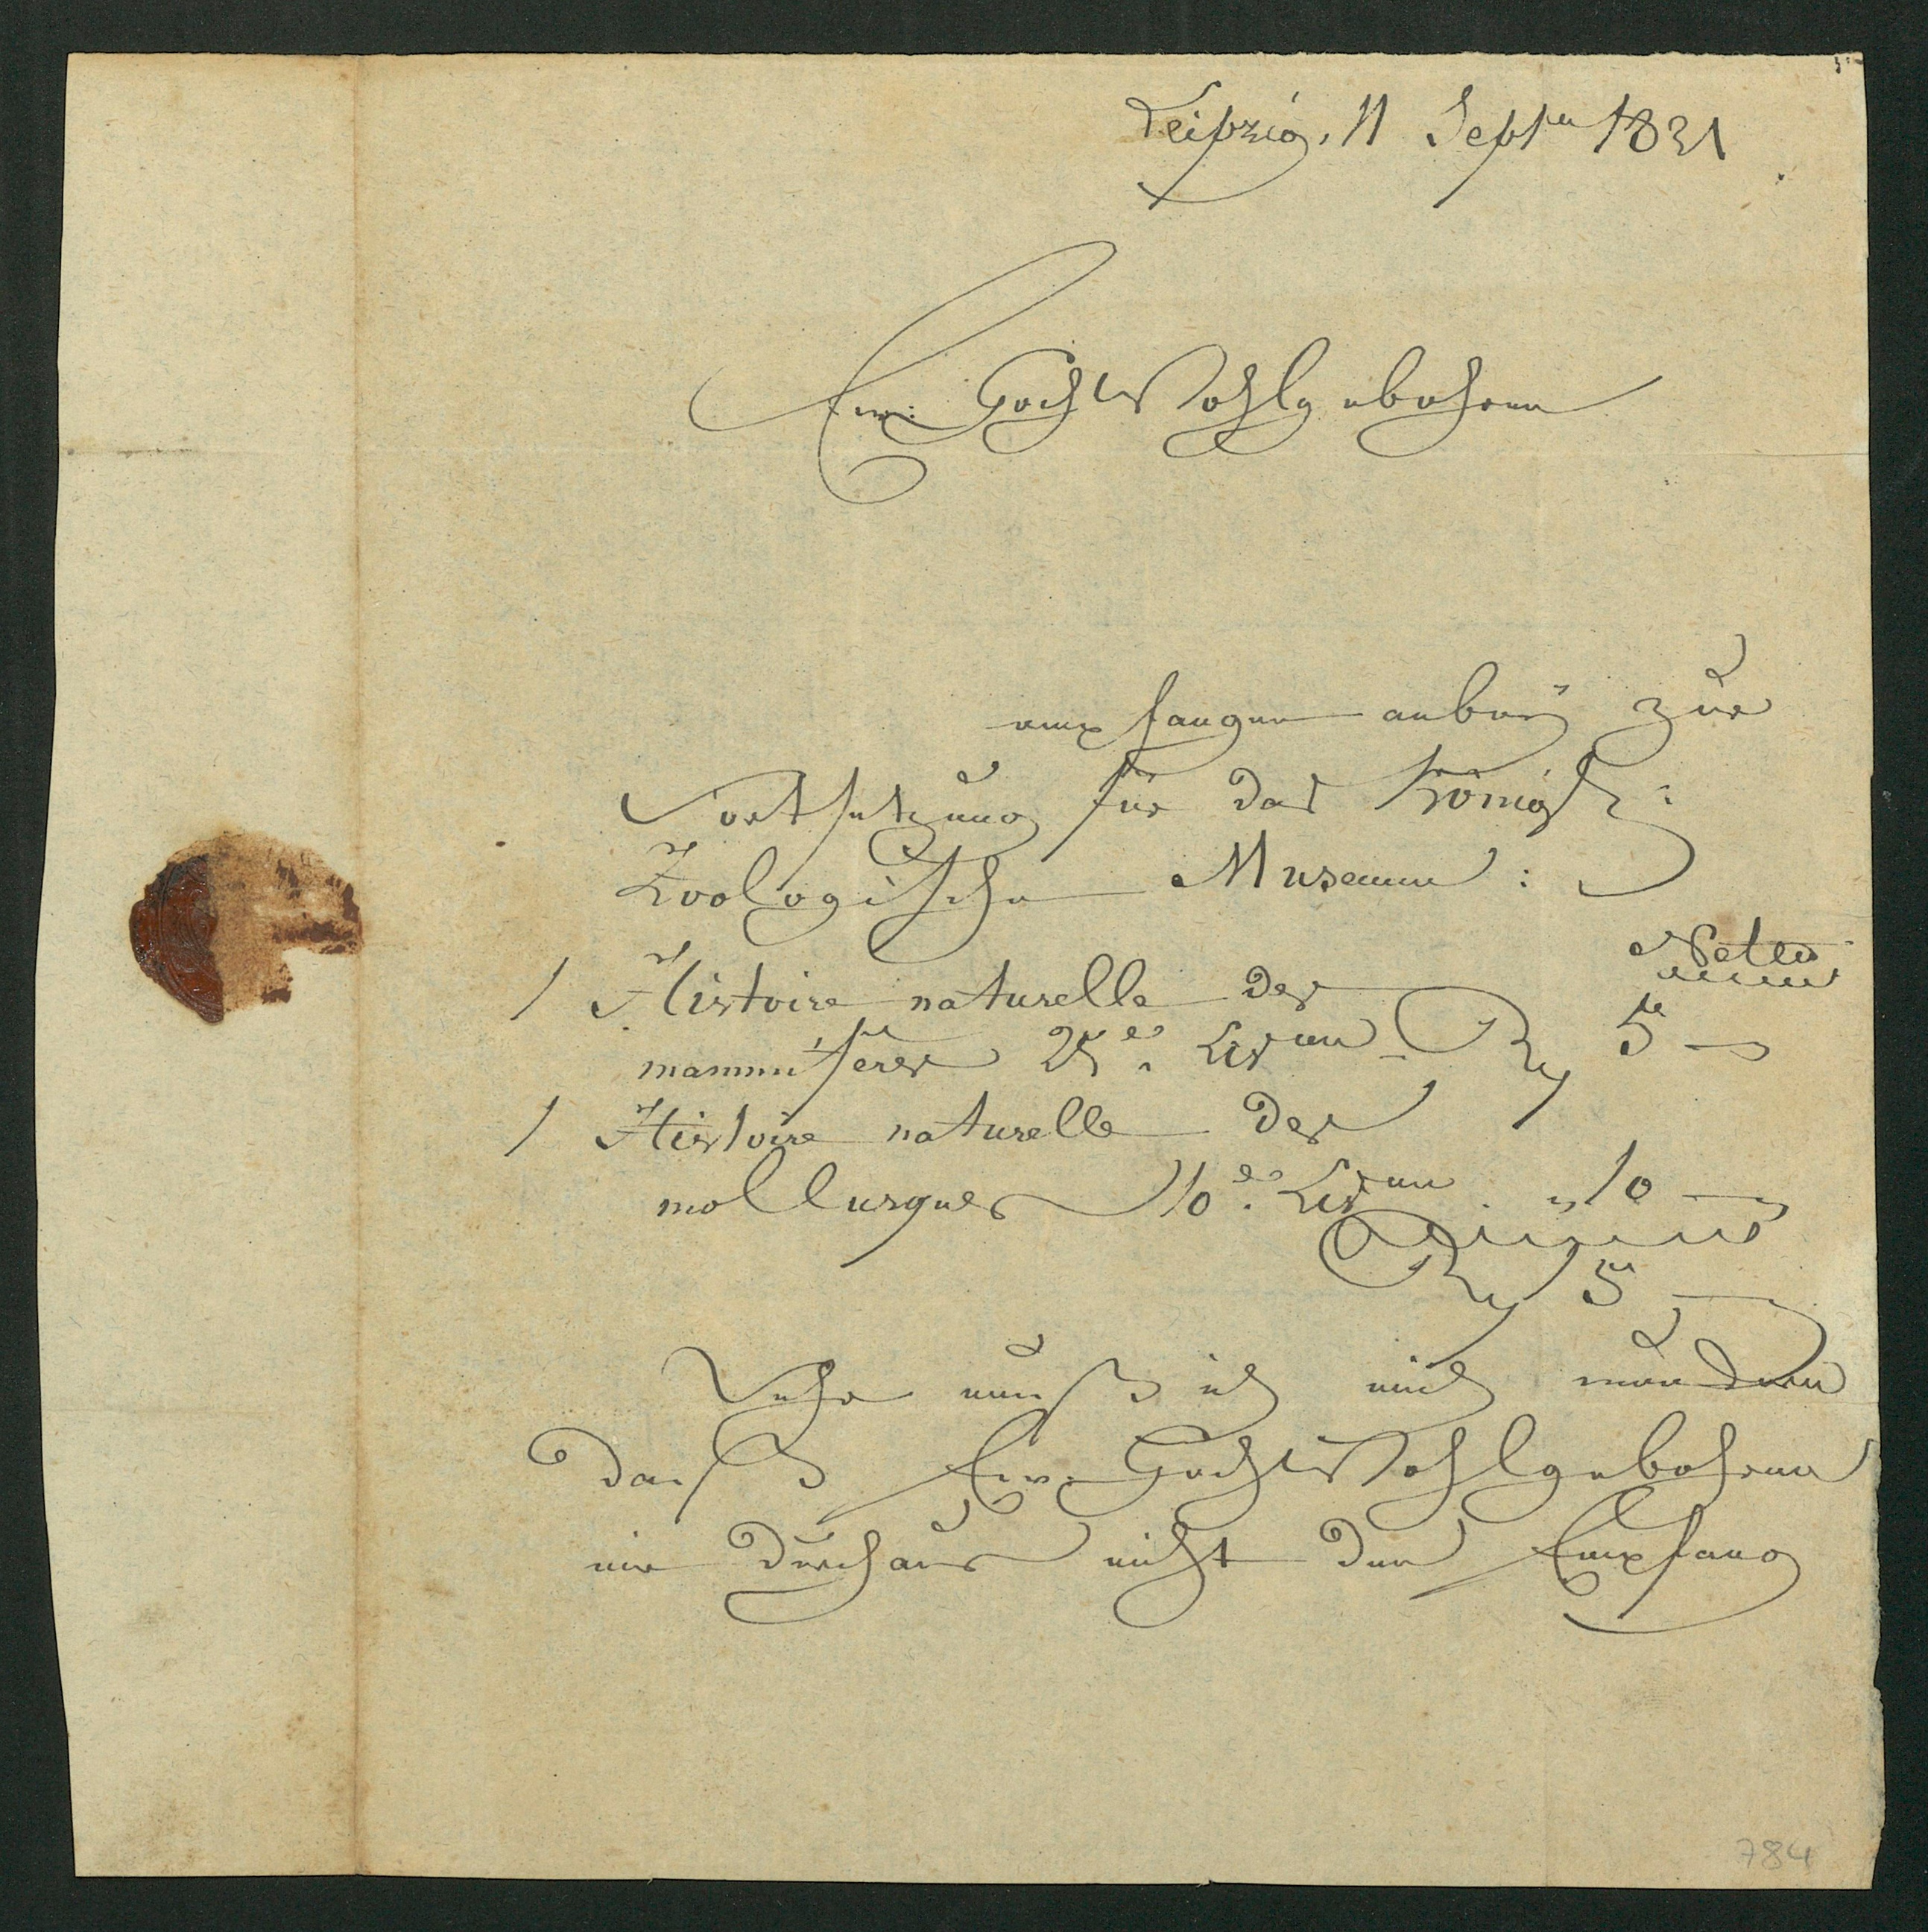 Leipzig, 11 Septr 1821
Ew: HochWohlgebohren
empfangen anbey zur
Fortsetzung für das Königl:
Zoologische Museum:
Netto
1 Histoire naturelle des
mammiferes 25e. Livon - R 5 —
1 Histoire naturelle des
mollusques 10e. Livon . „ 10 —
R 5 —
Sehr muß ich mich wundern
daß Ew. HochWohlgebohren
mir durchaus nicht den Empfang
784